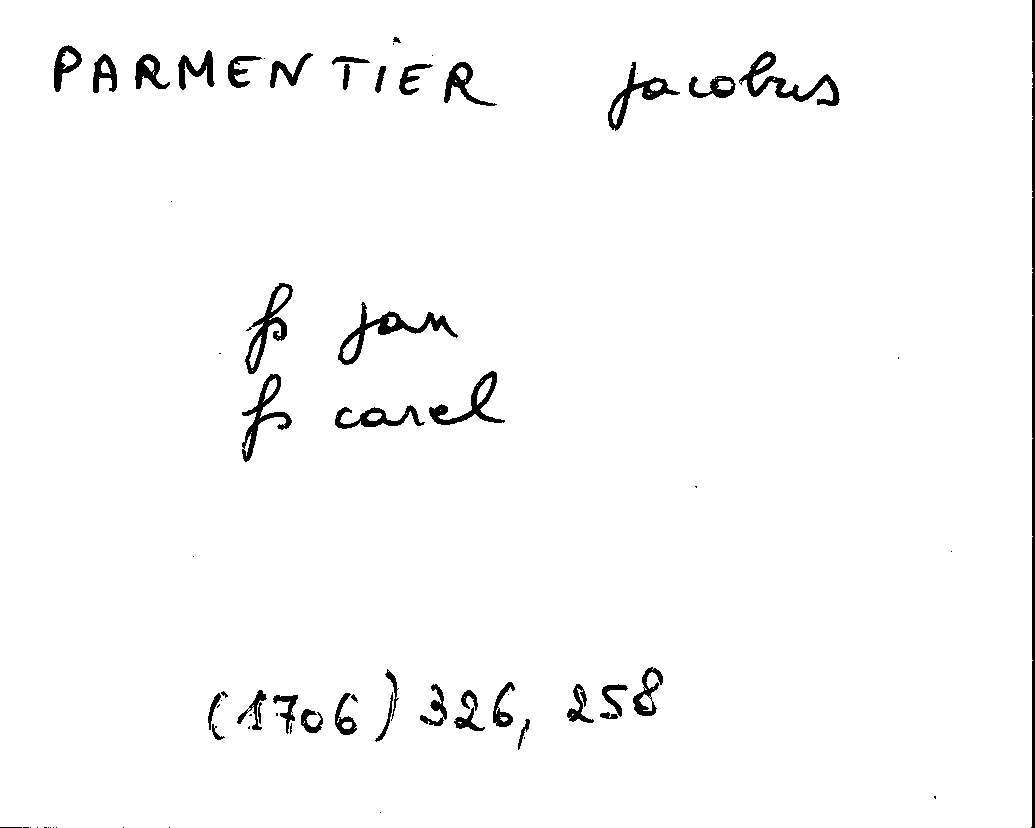 PARMENTIER Jacobus
fs Jan
fs carel
(1706) 326, 258